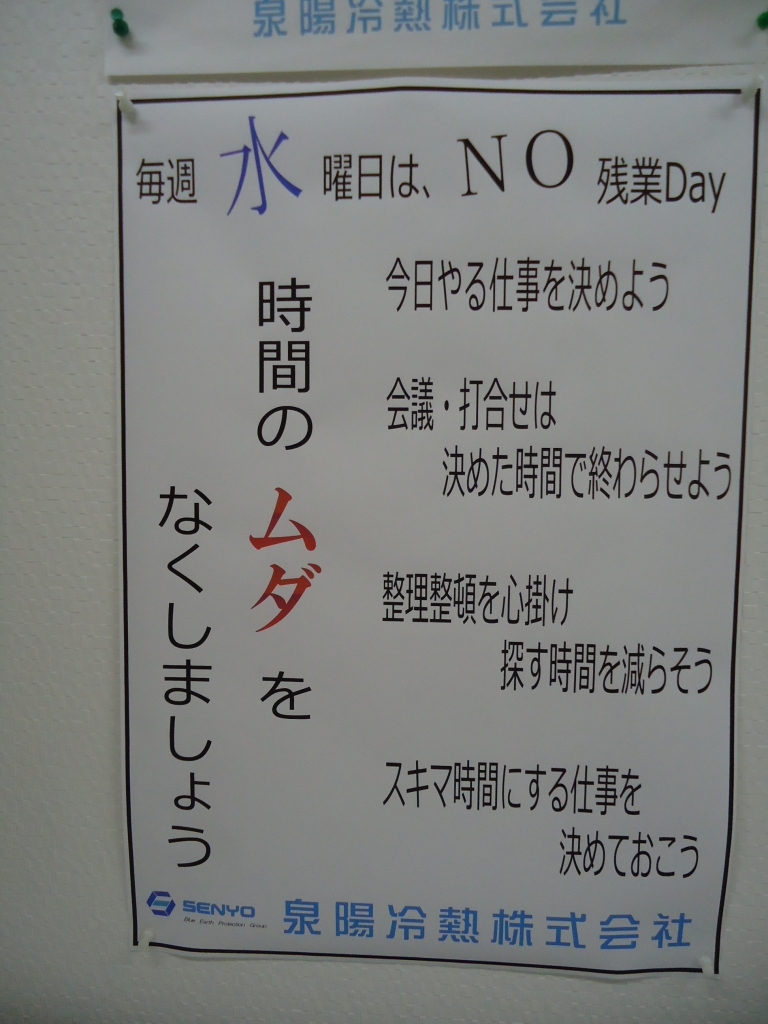 泉陽冷熱株式会社
毎週 水 曜日は、NO 残業Day
時間の ムダ を
なくしましょう
今日やる仕事を決めよう
会議・打合せは
決めた時間で終わらせよう
整理整頓を心掛け
探す時間を減らそう
スキマ時間にする仕事を
決めておこう
SENYO
Blue Earth Protection Group
泉陽冷熱株式会社